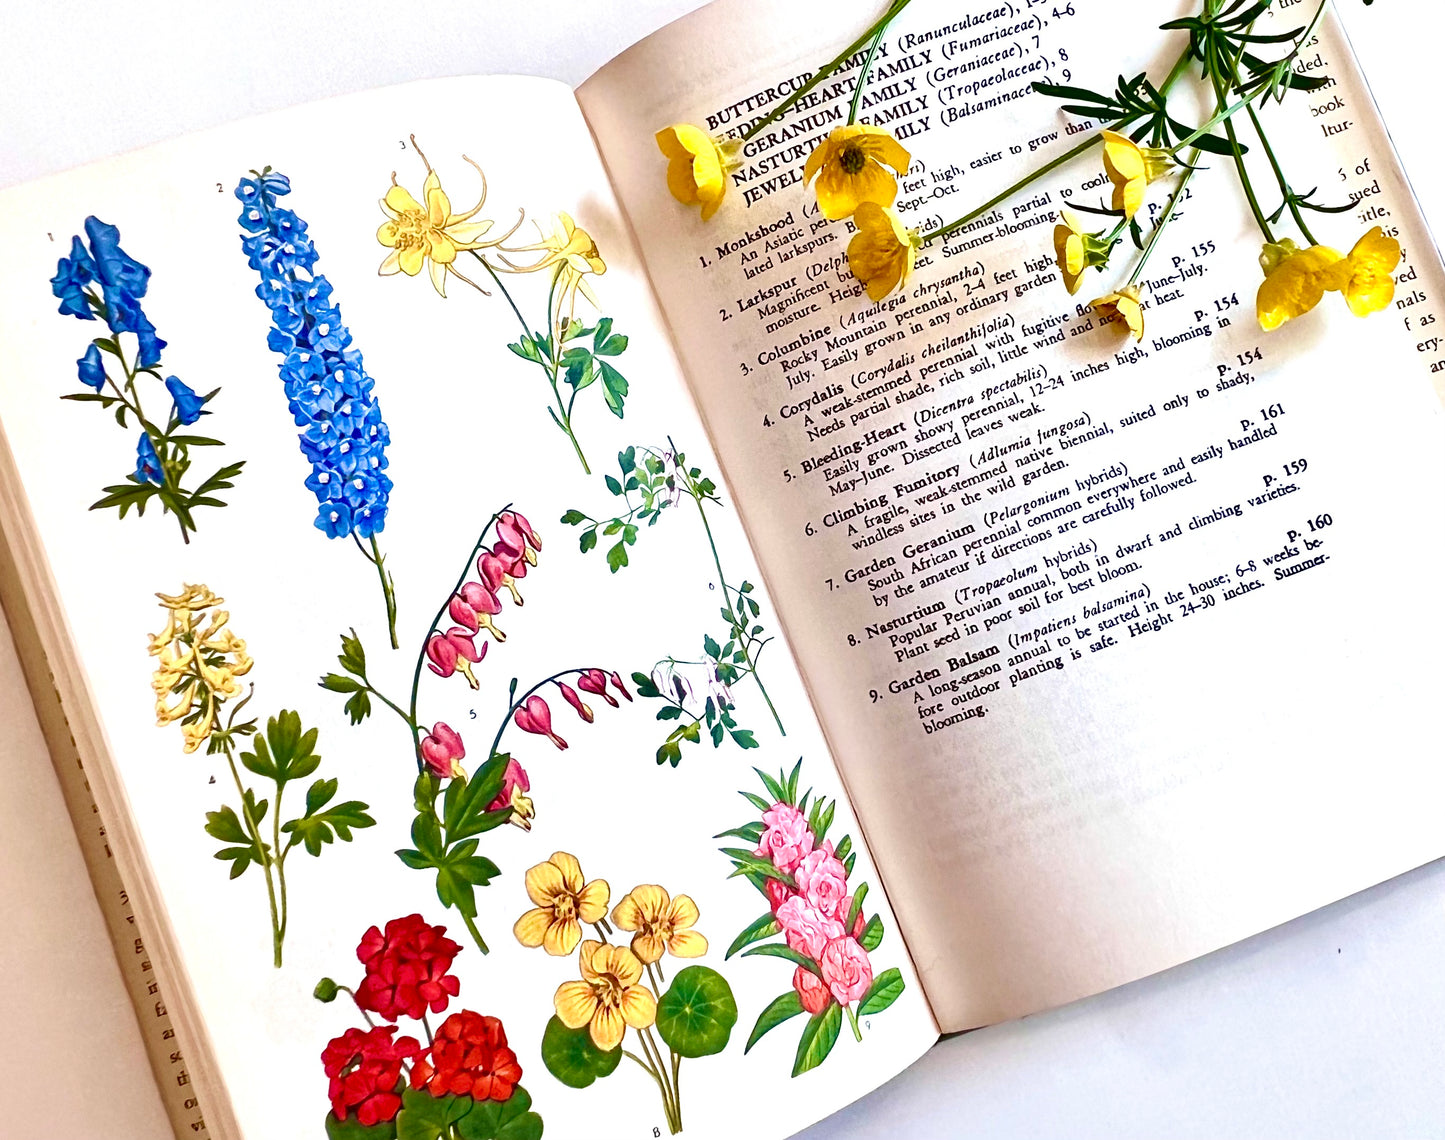 BUTTERCUP FAMILY (Ranunculaceae), 1–3
EDING–HEART FAMILY (Fumariaceae), 4–6
GERANIUM FAMILY (Geraniaceae), 7
NASTURTIUM FAMILY (Tropaeolaceae), 8
JEWELW MILY (Balsaminaceae), 9
1. Monkshood (A
An Asiatic pere feet high, easier to grow than
lated larkspurs. B Sept–Oct.
2. Larkspur (Delph
Magnificent perennials partial to cool
moisture. Heig feet. Summer-blooming.
3. Columbine (Aquilegia chrysantha)
Rocky Mountain perennial, 2–4 feet high, June–
July. Easily grown in any ordinary garden
p. 155
4. Corydalis (Corydalis cheilanthifolia)
A weak-stemmed perennial with fugitive June–July.
Needs partial shade, rich soil, little wind and no heat.
p. 154
5. Bleeding-Heart (Dicentra spectabilis)
Easily grown showy perennial, 12–24 inches high, blooming in
May–June. Dissected leaves weak.
p. 154
6. Climbing Fumitory (Adlumia fungosa)
A fragile, weak-stemmed native biennial, suited only to shady,
windless sites in the wild garden.
p. 161
7. Garden Geranium (Pelargonium hybrids)
South African perennial common everywhere and easily handled
by the amateur if directions are carefully followed.
p. 159
8. Nasturtium (Tropaeolum hybrids)
Popular Peruvian annual, both in dwarf and climbing varieties.
Plant seed in poor soil for best bloom.
p. 160
9. Garden Balsam (Impatiens balsamina)
A long-season annual to be started in the house; 6–8 weeks be-
fore outdoor planting is safe. Height 24–30 inches. Summer-
blooming.
1
2
3
4
5
6
8
9